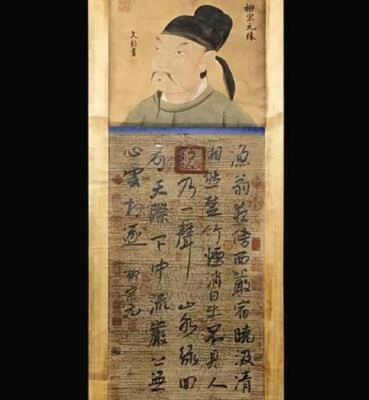 柳宗元像
文彭畫
漁翁夜傍西巖宿曉汲清
湘燃楚竹煙消日出不見人
欸乃一聲山水綠回
看天際下中流巖上無
心雲相逐 柳宗元